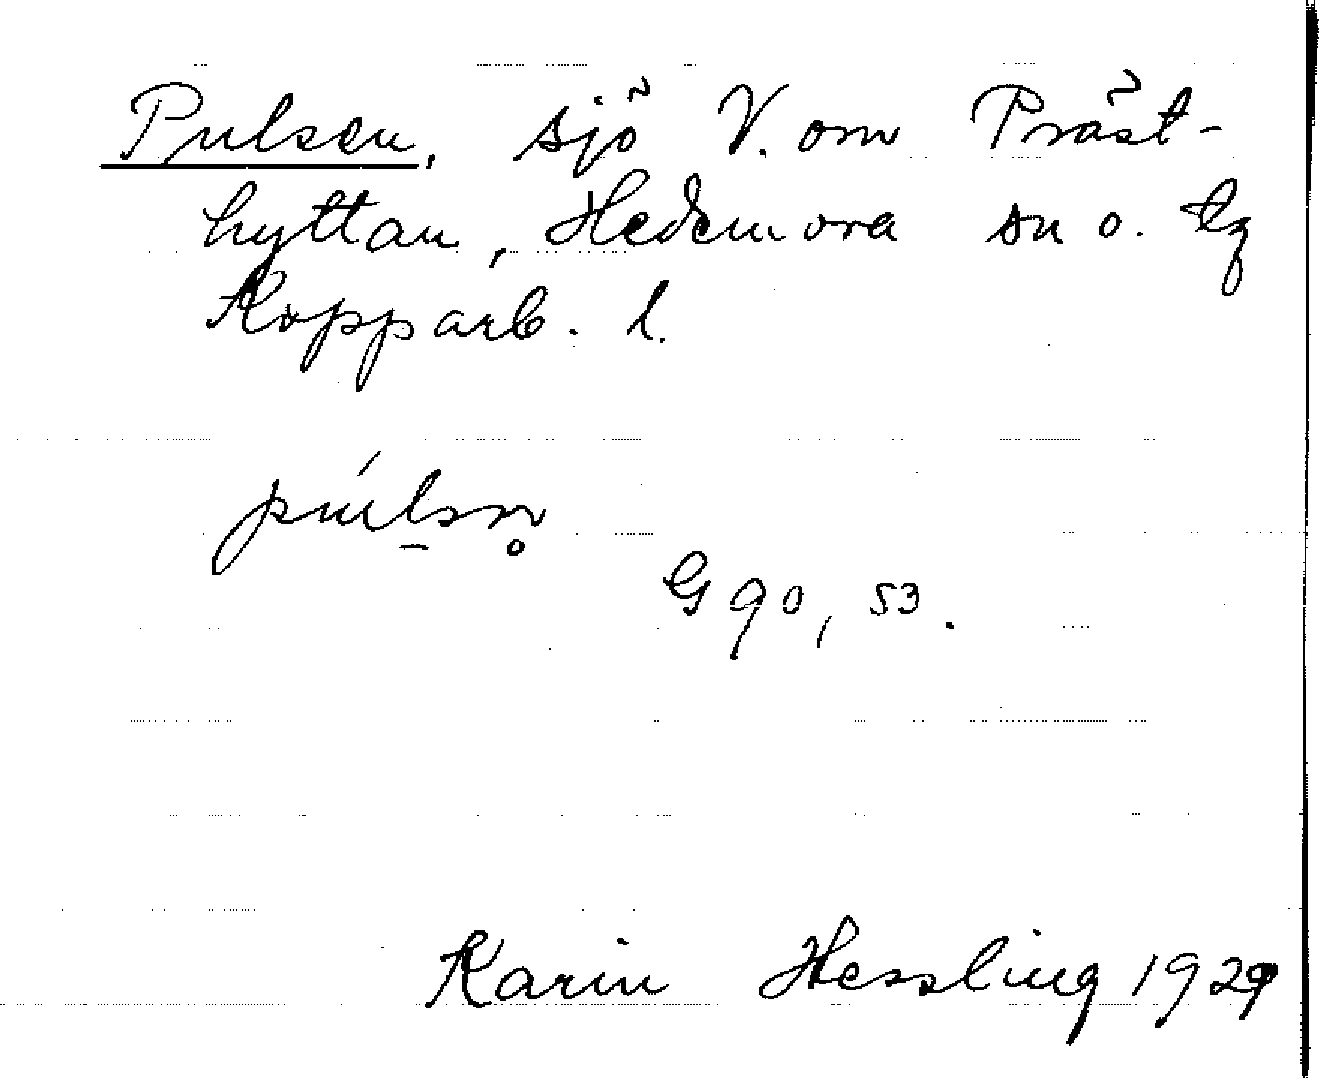 Pulsen, sjö V. om Präst-
hyttan, Hedemora sn o. tg
Kopparb. l.
púl̠sn̥
G 90, 53.
Karin Hessling 1929